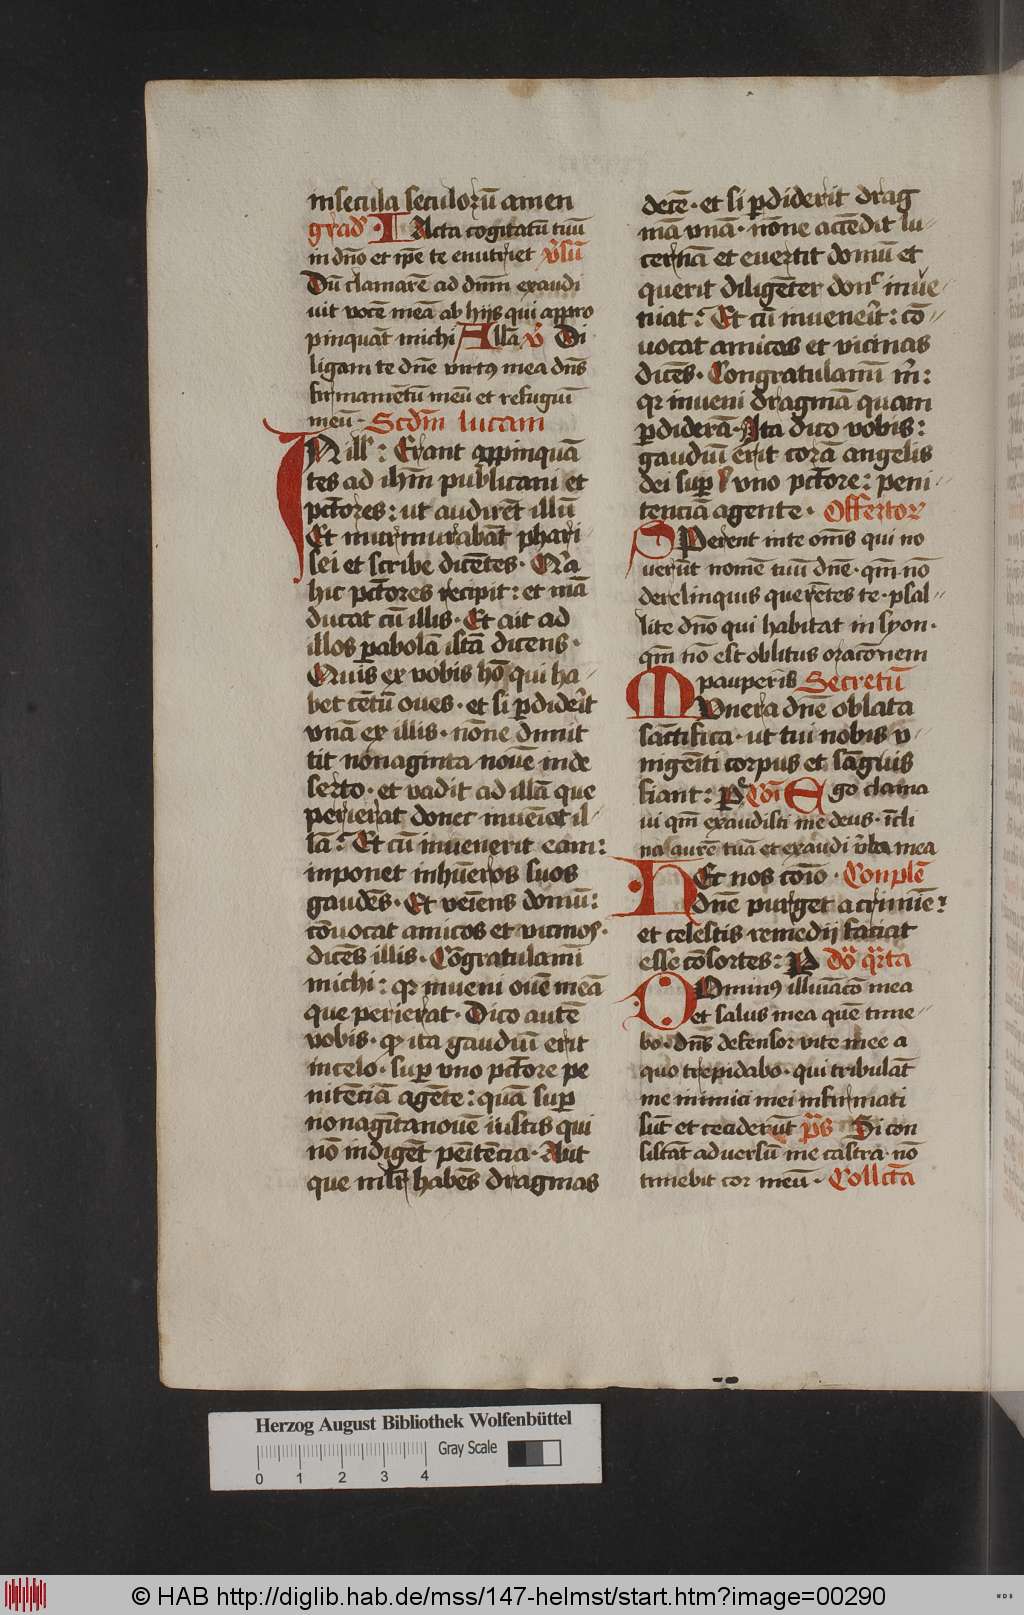 in secula seculorū amen
grad̄ IActa cogitatū tuū
in dn̄o et ip̄e te enutriet v̓sū
Dū clamarē ad dn̄m exaudi
uit vocē meā ab hijs qui appro
pinquāt michi Allā v̓ Di
ligam te dn̄e virtꝰ mea dn̄s
firmamētū meū et refugiū
meū · Scdm̄ lucam
IN ill̓ : Erant appinquā
tes ad ihm̄ publicani et
pc̄tores : ut audirēt illū
Et murmurabāt phari
sei et scribe dicētes · Qr̓a
hic pc̄tores recipit : et mā
ducat cū illis · Et ait ad
illos pabolā istā dicens ·
Quis ex vobis hō qui ha-
bet cētū oues · et si pdiderit
vnā ex illis · nōne dimit
tit nonaginta nouē in de
serto · et vadit ad illā que
perierat donec inueīet il-
lā : Et cū inuenerit eam :
inponet in hūeros suos
gaudēs · Et veīens domū :
cōuocat amicos et vicinoꝝ ·
dicēs illis · Cōgratulamī
michi : qr inueni ouē meā
que perierat · Dico autē
vobis · ꝙ ita gaudiū erit
in celo · sup vno pc̄tore pe
nitēciā agēte : quā sup
nonagītanouē iustis qui
nō indigēt peītēcia · Aut
que ml̓r habēs dragmas
decē · et si pdiderit drag
mā vnā · nōne accēdit lu-
cernā et euertit domū et
querit diligēter donc̄ inue-
niat : Et cū inuenerit : cō-
uocat amicas et vicinas
dicēs · Congratulamī m̄ :
qr inueni dragmā quam
pdiderā · Ita dico vobis :
gaudiū erit corā angelis
dei sup vno pc̄tore : peni-
tenciā agente · Offertor
SPerent in te om̄s qui no
uerūt nomē tuū dn̄e · qm̄ nō
derelinquis querētes te · psal-
lite dn̄o qui habitat in syon ·
qm̄ nō est oblitus orac̄onem
pauperis Secretū
MVnera dn̄e oblata
sāctifica · ut tui nobis v-
nigēiti corpus et sāguis
fiant : p Cōi Ego clama
ui qm̄ exaudisti me deus · īcli
na aurē tuā et exaudi v̓ba mea
HEt nos cōio · Conplē
dn̄e purget a crimīe :
et celestis remedij faciat
esse cōsortes : P dō qr̄ta
DOminꝰ illuīac̄o mea
et salus mea quē time-
bo · dn̄s defensor vite mee a
quo trepidabo · qui tribulāt
me inimici mei infirmati
sūt et ceciderūt p̄s Si con
sistāt aduersū me castra nō
timebit cor meū · Collc̄ta
Herzog August Bibliothek Wolfenbüttel
Gray Scale
0 1 2 3 4
© HAB http://diglib.hab.de/mss/147-helmst/start.htm?image=00290